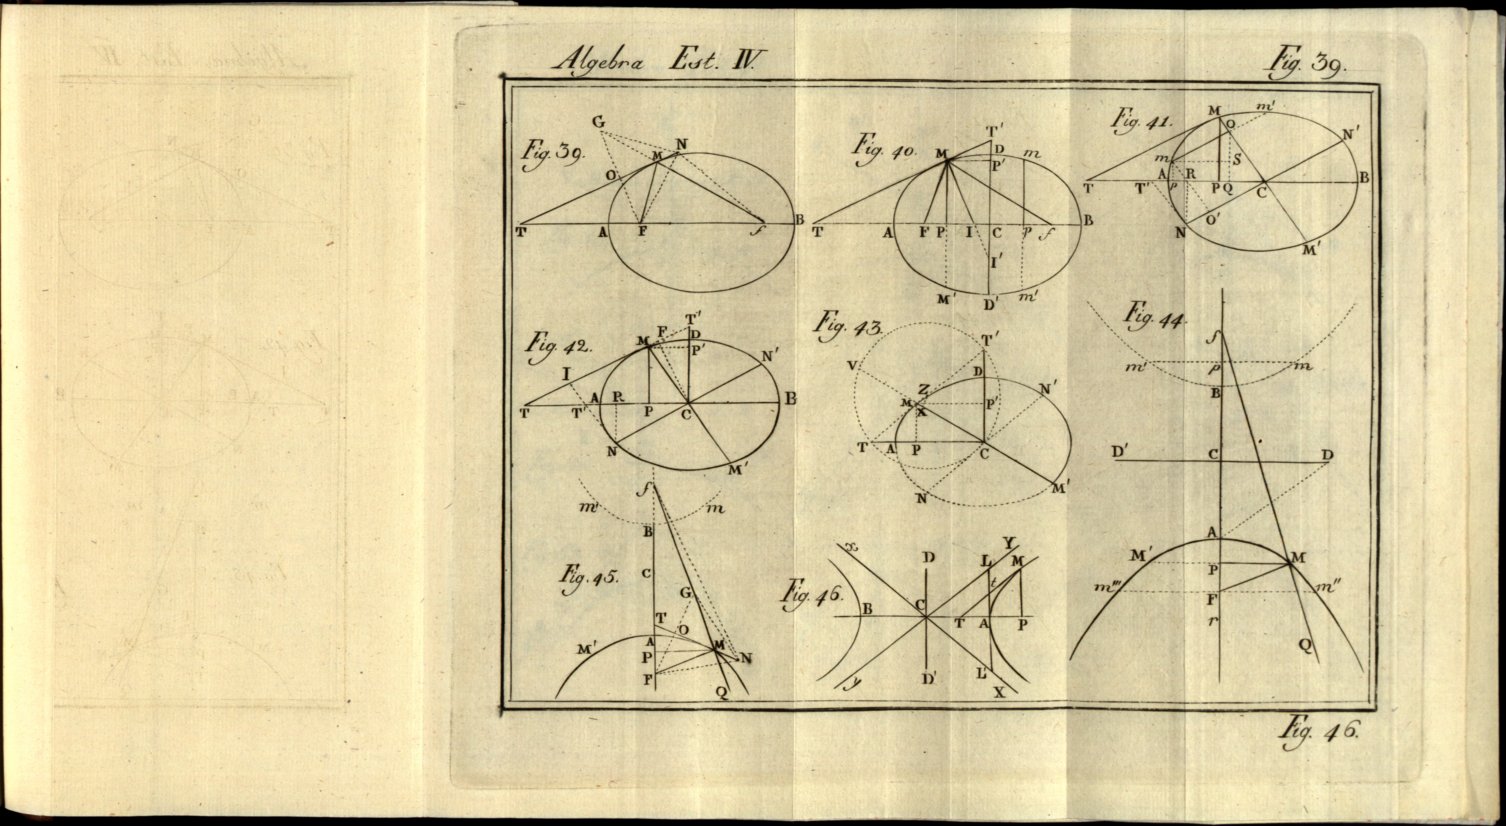 Algebra Est. IV. Fig. 39.
Fig. 39.
G
N
M
O
T A F f B
Fig. 40.
T'
D
M m
P'
T A F P I C p f B
I'
M' D' m'
Fig. 41.
M m'
O N'
m S
T T' A p R P Q C B
O'
N M'
Fig. 42.
T'
M F D
P' N'
I
T T' A R P C B
N
M'
Fig. 43.
T'
V
D
Z N'
M X P'
T A P C
N M'
Fig. 44.
f
m' p m
B
D' C D
A
M' M
P
m''' F m''
r
Q
Fig. 45.
f
m' m
B
C
G
T
O
M' A M
P N
F
Q
Fig. 46.
x D L Y M
t
B C T A P
y D' L' X
Fig. 46.